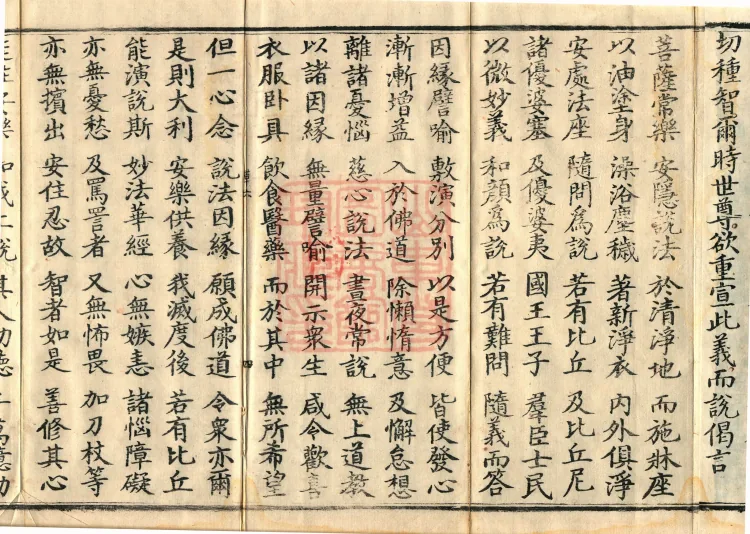 切種智爾時世尊欲重宣此義而說偈言
菩薩常樂 安隱說法 於清淨地 而施牀座
以油塗身 澡浴塵穢 著新淨衣 內外俱淨
安處法座 隨問為說 若有比丘 及比丘尼
諸優婆塞 及優婆夷 國王王子 羣臣士民
以微妙義 和顏為說 若有難問 隨義而答
因緣譬喻 敷演分別 以是方便 皆使發心
漸漸增益 入於佛道 除懶惰意 及懈怠想
離諸憂惱 慈心說法 晝夜常說 無上道教
以諸因緣 無量譬喻 開示眾生 咸令歡喜
衣服臥具 飲食醫藥 而於其中 無所希望
四
但一心念 說法因緣 願成佛道 令眾亦爾
是則大利 安樂供養 我滅度後 若有比丘
能演說斯 妙法華經 心無嫉恚 諸惱障礙
亦無憂愁 及罵詈者 又無怖畏 加刀杖等
亦無擯出 安住忍故 智者如是 善修其心